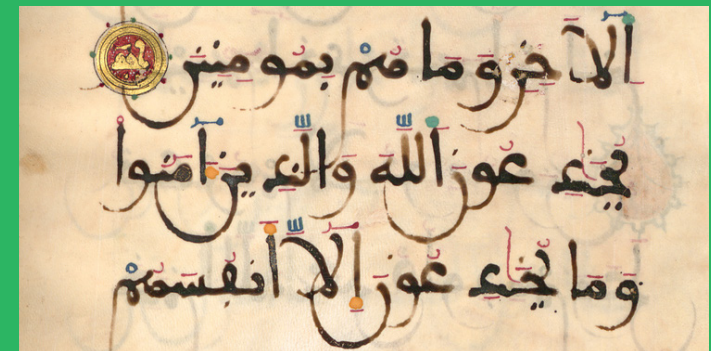 اَ۬لَاخِرِ وَمَا هُم بِمُومِنِينَ
يُخَٰدِعُونَ اَ۬للَّهَ وَالذِينَ ءَامَنُواْ
وَمَا يُخَٰدِعُونَ إِلَّا أَنفُسَهُمْ